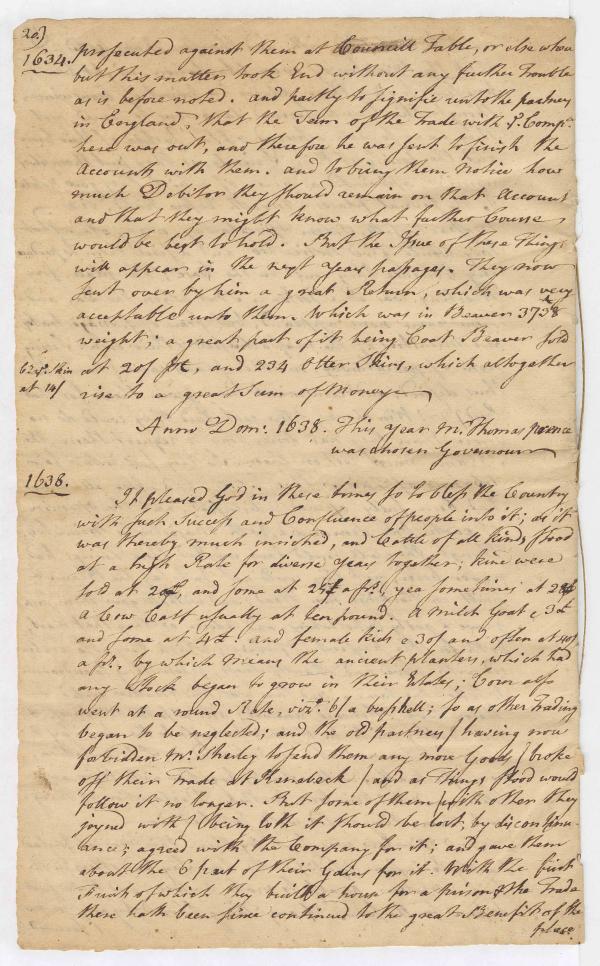 20)
1634. prosecuted against them at Councill Table, or else where
but this matter took End without any further Trouble
as is before noted. and partly to signifie unto the partners
in England, that the Term of the Trade with yr. Compa.
here was out, and therefore he was sent to finish the
Accounts with them. and to bring them Notice how
much Debitor they should remain on that Account
and that they might know what further Course
would be best to hold. But the Issue of these Things
will appear in the next years passages. They now
sent over by him a great Return, which was very
acceptable unto them. which was in Beaver 3738 lb
weight; a great part of it being Coat Beaver sold
at 20s pr. lb, and 234 Otter Skins, which altogether
at 14s
rise to a great Sum of Money
Anno Dom. 1638. This year Mr. Thomas prence
was chosen Governour
1638.
It pleased God in these times so to bless the Country
with such Success and Confluence of people into it; as it
was thereby much inriched, and Cattle of all kinds stood
at a high Rate for diverse years together; kine were
sold at 20£, and some at 25£ a ps., yea sometimes at 28£
A Cow Calf usually at ten pound. A milch Goat @ 3£
and some at 4£. and female kids @ 30s and often at 40s
a ps., by which means the ancient planters, which had
any Stock began to grow in their Estates; Corn also
went at a round Rate, vizt. 6s a bushell; so as other Trading
began to be neglected; and the old partners / having now
forbidden Mr. Sherley to send them any more Goods / broke
off their Trade at Kenebeck / and as Things stood would
follow it no longer. But some of them / with other they
joyned with / being loth it should be lost, by discontinu-
ance; agreed with the Company for it; and gave them
about the 6 part of their Gains for it. With the first
Fruit of which they built a house for a prison & the Trade
there hath been since continued to the great Benefit of the
place